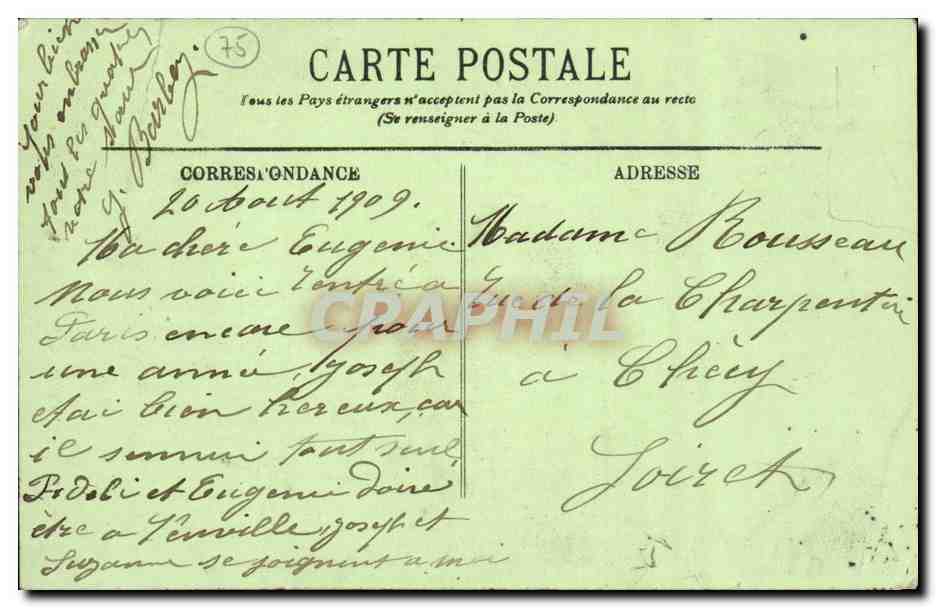 75
CARTE POSTALE
Tous les Pays étrangers n'acceptent pas la Correspondance au recto
(Se renseigner à la Poste)
CORRESPONDANCE
20 Aout 1909.
Ma chère Eugenie
Nous voici rentré a
Paris encore pour
une année, Joseph
etai bien hereux, car
il sennui tout seul
et Eugenie doive
être a Yenville, Joseph et
Suzanne se joignent a moi
pour bien
vous embrasser
tous les quatres
votre
Y. Barbey.
ADRESSE
Madame Rousseau
rue de la Charpenterie
a Chécy
Loiret
CRAPHIL